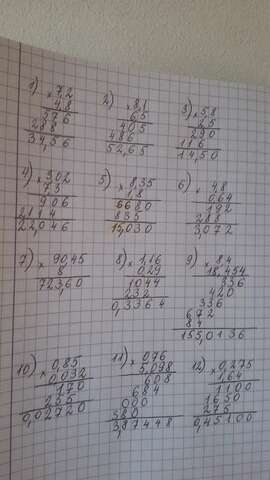 1) × 7,2
4,8
576
288
34,56
2) × 8,1
6,5
405
486
52,65
3) × 5,8
2,5
290
116
14,50
4) × 3,02
7,3
906
2114
22,046
5) × 8,35
1,8
6680
835
15,030
6) × 4,8
0,64
192
288
3,072
7) × 90,45
8
723,60
8) × 1,16
0,29
1044
232
0,3364
9) × 8,4
18,454
336
420
336
672
84
155,0136
10) × 0,85
0,032
170
255
0,02720
11) × 0,76
5,098
608
684
000
380
3,87448
12) × 0,275
1,64
1100
1650
275
0,45100